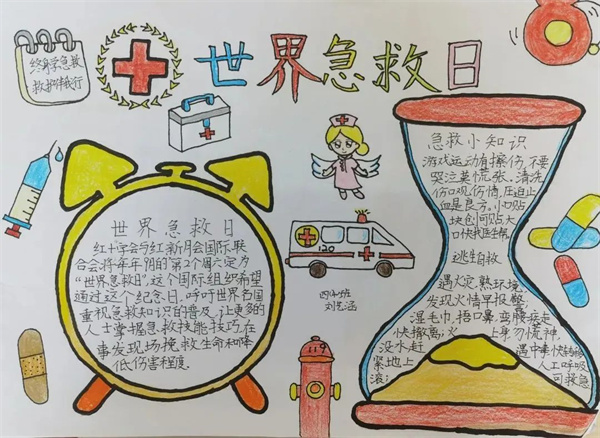 世界急救日
终身学急救
救护伴我行
世界急救日
红十字会与红新月会国际联
合会将年年9月的第2个周六定为
“世界急救日”,这个国际组织希望
通过这个纪念日,呼吁世界各国
重视急救知识的普及,让更多的
人士掌握急救技能技巧,在
事发现场挽救生命和降
低伤害程度.
120
四(4)班
119
急救小知识
游戏运动有擦伤,不要
哭泣莫慌张。清洗
伤口观伤情,压迫止
血是良方。小口贴
块创可贴大
口快找医生帮。
逃生自救
遇火灾,熟环境,
发现火情早报警,
湿毛巾,捂口鼻,弯腰疾走
快撤离;火 上身勿慌神,
没水赶
紧地上
滚;
遇中毒快转移
人工呼吸
可救急